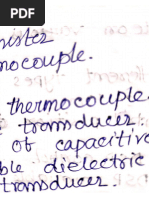 nister
mocouple.
thermocouple
tromducer
of capacitiv
ble dielectric
transducer.